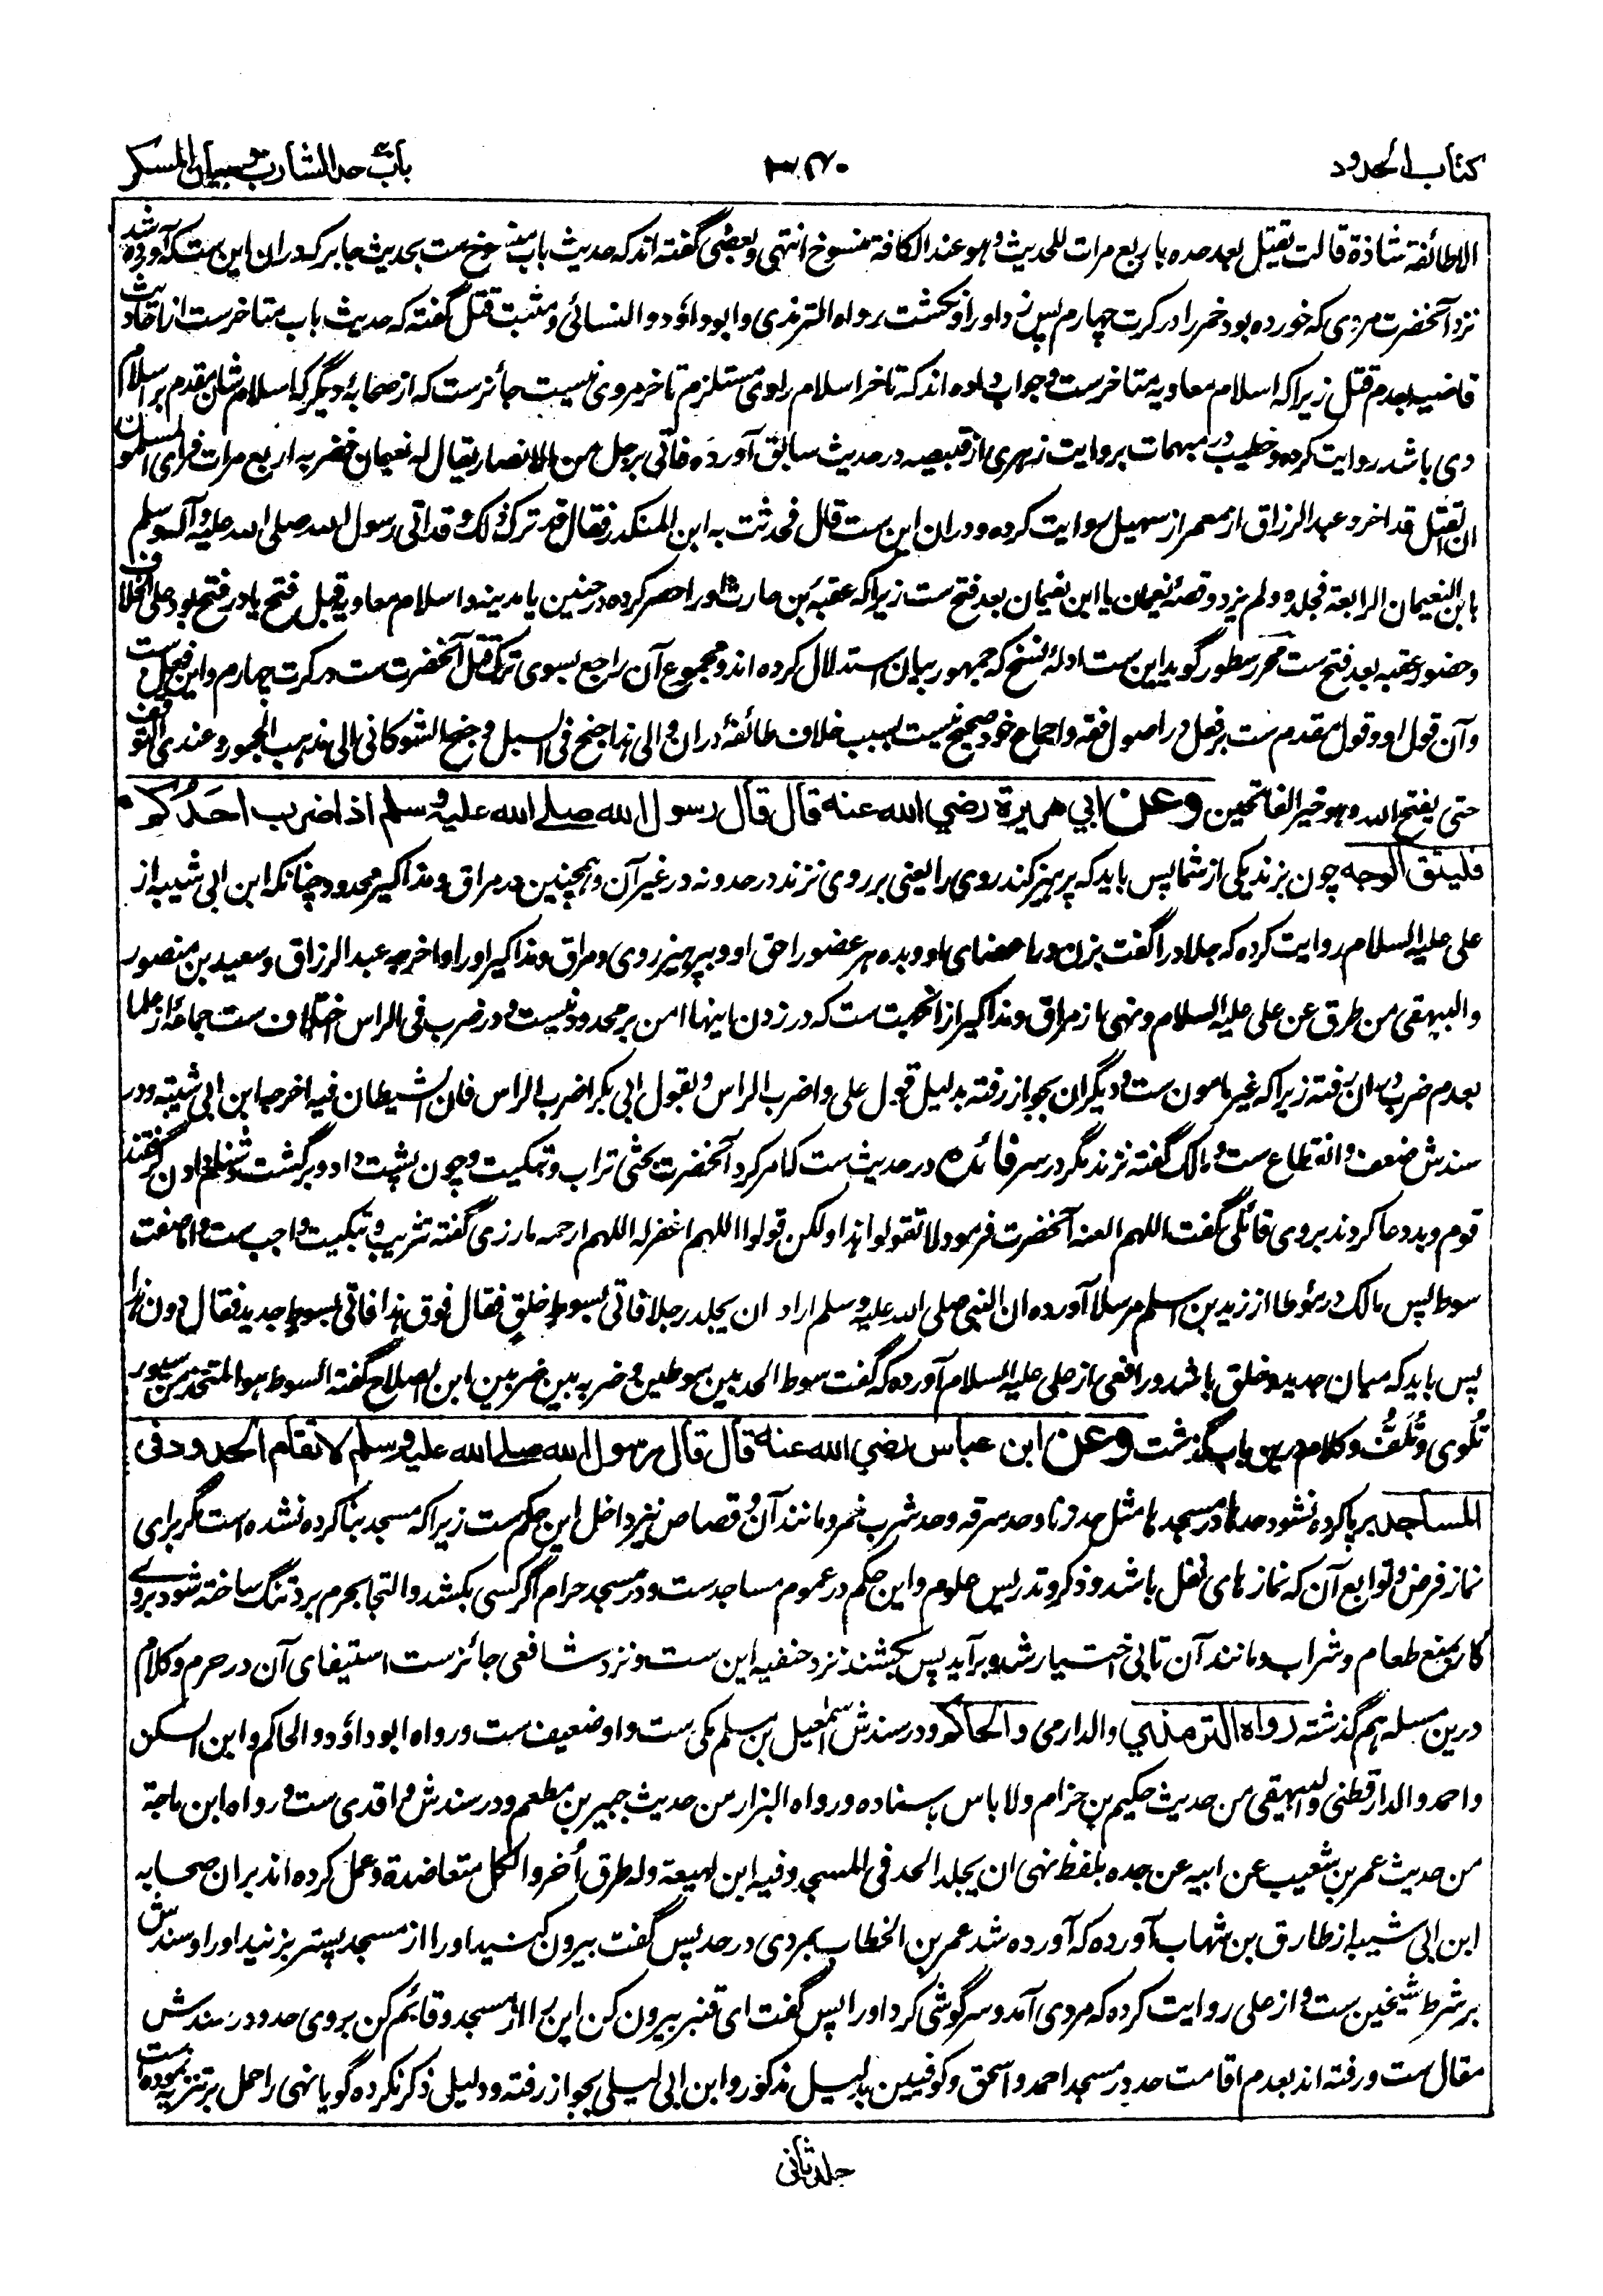 کتاب الحدود
۴۷۰
باب حد الشارب وبیان المسکر
الا طائفة شاذة قالت یقتل بعد حده باربع مرات للحدیث وهو عند الکافة منسوخ انتهی وبعضی گفته اند که حدیث باب منسوخ ست بحدیث جابر که دران این ست که آورده شد
نزد آنحضرت مردی که خورده بود خمر را در کرت چهارم پس زد او را و نکشت رواه الترمذی وابوداؤد والنسائی ومثبت قتل گفته که حدیث باب متاخرست از احادیث
قاضیه بعدم قتل زیرا که اسلام معاویه متاخرست وجواب داده اند که تاخر اسلام راوی مستلزم تاخر مروی نیست جائزست که از صحابهٔ دیگر که اسلام شان مقدم بر اسلام
وی باشد روایت کرده وخطیب در مبهمات بروایت زهری از قبیصه در حدیث سابق آورده فاتی برجل من الانصار یقال له نعیمان فضربه اربع مرات فرای المسلمون
ان القتل قد اخر وعبد الرزاق از معمر از سهیل روایت کرده ودران این ست قال فحدثت به ابن المنکدر فقال قد ترک ذلک وقد اتی رسول الله صلی الله علیه وآله وسلم
بابن النعیمان الرابعة فجلده ولم یزد وقصهٔ نعیمان یا ابن نعیمان بعد فتح ست زیرا که عقبة بن حارث او را حصر کرده در حنین یا مدینه واسلام معاویه قبل فتح یا در فتح بود علی الخلاف
وحضور عقبه بعد فتح ست محرر سطور گوید این ست ادلهٔ نسخ که جمهور ببیان استدلال کرده اند ومجموع آن راجع بسوی ترک قتل آنحضرت ست در کرت چهارم واین فعل ست
وآن قول او وقول مقدم ست بر فعل در اصول فقه واجماع خود صحیح نیست بسبب خلاف طائفهٔ دران والی هذا جنح فی السبل وجنح الشوکانی الی مذهب الجمهور وعندی التوقف
حتی یفتح الله وهو خیر الفاتحین وعن ابی هریرة رضی الله عنه قال قال رسول الله صلی الله علیه وسلم اذا ضرب احدکم
فلیتق الوجه چون بزند یکی از شما پس باید که پرهیز کند روی را یعنی بر روی نزند در حد ونه در غیر آن وهمچنین در مراق ومذاکیر محدود چنانکه ابن ابی شیبه از
علی علیه السلام روایت کرده که جلاد را گفت بزن در اعضای او وبده هر عضو را حق او وبپرهیز روی ومراق ومذاکیر او را واخرجه عبد الرزاق وسعید بن منصور
والبیهقی من طرق عن علی علیه السلام ونهی از مراق ومذاکیر ازانجهت ست که در زدن اینها امن بر محدود نیست ودر ضرب فی الراس اختلاف ست جماعهٔ از علما
بعدم ضرب دران رفته زیرا که غیر مامون ست ودیگران بجواز رفته بدلیل قول علی واضرب الراس وبقول ابی بکر اضرب الراس فان الشیطان فیه اخرجه ابن ابی شیبة ودر
سندش ضعف وانقطاع ست ومالک گفته نزند مگر در سر فائده در حدیث ست که امر کرد آنحضرت بحثی تراب وتبکیت وچون پشت داد وبرگشت دشنام دادن گرفتند
قوم وبددعا کردند بروی قائلی گفت اللهم العنه آنحضرت فرمود لا تقولوا هذا ولکن قولوا اللهم اغفر له اللهم ارحمه مارزی گفته تثریب وتبکیت واجب ست واما صفت
سوط پس مالک در مؤطا از زید بن اسلم مرسلا آورده ان النبی صلی الله علیه وسلم اراد ان یجلد رجلا فاتی بسوط خلق فقال فوق هذا فاتی بسوط جدید فقال دون هذا
پس باید که میان جدید وخلق باشد ورافعی از علی علیه السلام آورده که گفت سوط الحد بین سوطین وضربه بین ضربین ابن الصلاح گفته السوط هو المتخذ من سیور
تلوی وتلف وکلام درین باب گذشت وعن ابن عباس رضی الله عنه قال قال رسول الله صلی الله علیه وسلم لا تقام الحدود فی
المساجد برپا کرده نشود حدها در مسجدها مثل حد زنا وحد سرقه وحد شرب خمر ومانند آن وقصاص نیز داخل این حکم ست زیرا که مسجد بنا کرده نشده است مگر برای
نماز فرض وتوابع آن که نمازهای نفل باشد وذکر وتدریس علوم واین حکم در عموم مساجدست ودر مسجد حرام اگر کسی بکشد والتجا بحرم برد تنگ ساخته شود بروی
کار بمنع طعام وشراب ومانند آن تا بی اختیار شده برآید پس بکشند نزد حنفیه این ست ونزد شافعی جائزست استیفای آن در حرم وکلام
درین مسله هم گذشته رواه الترمذی والدارمی والحاکم ودر سندش اسمعیل بن مسلم مکی ست واو ضعیف ست ورواه ابوداؤد والحاکم وابن السکن
واحمد والدارقطنی والبیهقی من حدیث حکیم بن حزام ولا باس باسناده ورواه البزار من حدیث جبیر بن مطعم ودر سندش واقدی ست ورواه ابن ماجة
من حدیث عمر بن شعیب عن ابیه عن جده بلفظ نهی ان یجلد الحد فی المسجد وفیه ابن لهیعة وله طرق اُخر والکل متعاضدة وعمل کرده اند بران صحابه
ابن ابی شیبه از طارق بن شهاب آورده که آورده شد عمر بن الخطاب بمردی در حد پس گفت بیرون کنید او را از مسجد پستر بزنید او را وسندش
بر شرط شیخین ست واز علی روایت کرده که مردی آمد وسرگوشی کرد او را پس گفت ای قنبر بیرون کن این را از مسجد وقایم کن بروی حد ودر سندش
مقال ست ورفته اند بعدم اقامت حد در مسجد احمد واسحق وکوفیین بدلیل مذکور وابن ابی لیلی بجواز رفته ودلیلی ذکر نکرده گویا نهی را حمل بر تنزیه نموده است
جلد ثانی